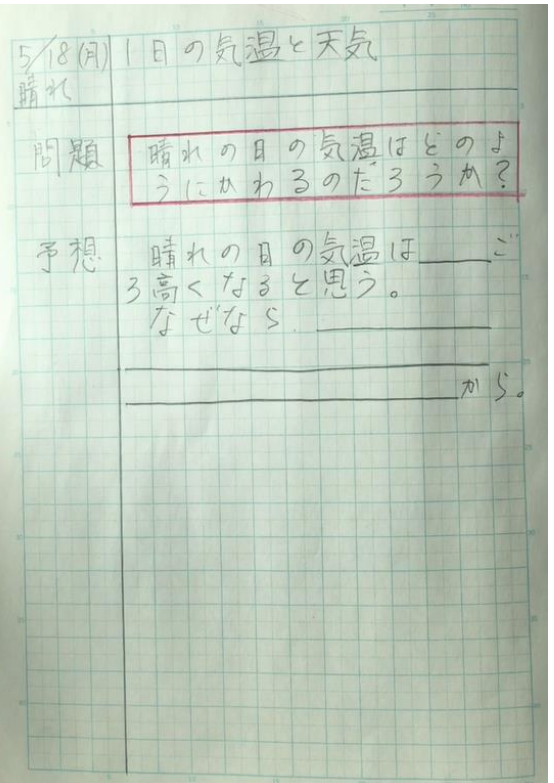 5/18(月) 1日の気温と天気
晴れ
問題 晴れの日の気温はどのよ
うにかわるのだろうか?
予想 晴れの日の気温は____ご
ろ高くなると思う。
なぜなら、____
____から。